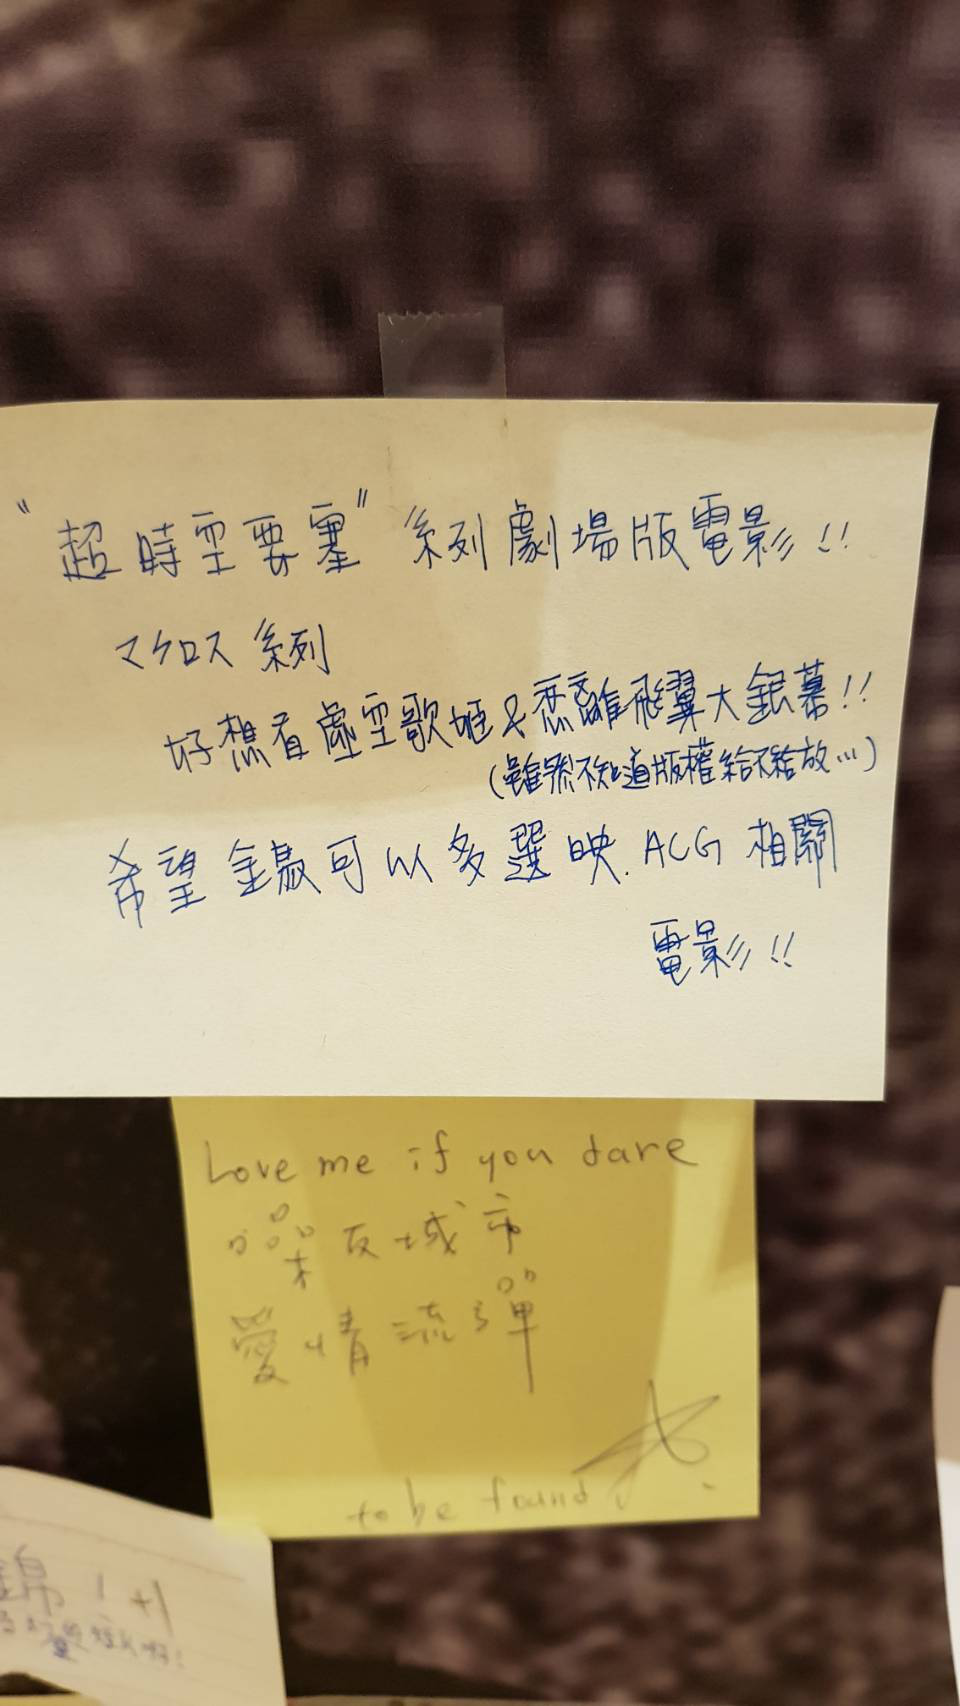 "超時空要塞"系列劇場版電影!!
マクロス 系列
好想看虛空歌姬&恋離飛翼大銀幕!!
(雖然不知道版權給不給放...)
希望 可以多選映 ACG 相關
電影!!
Love me if you dare
噪反城市
愛情流彈
to be found
錦!+1